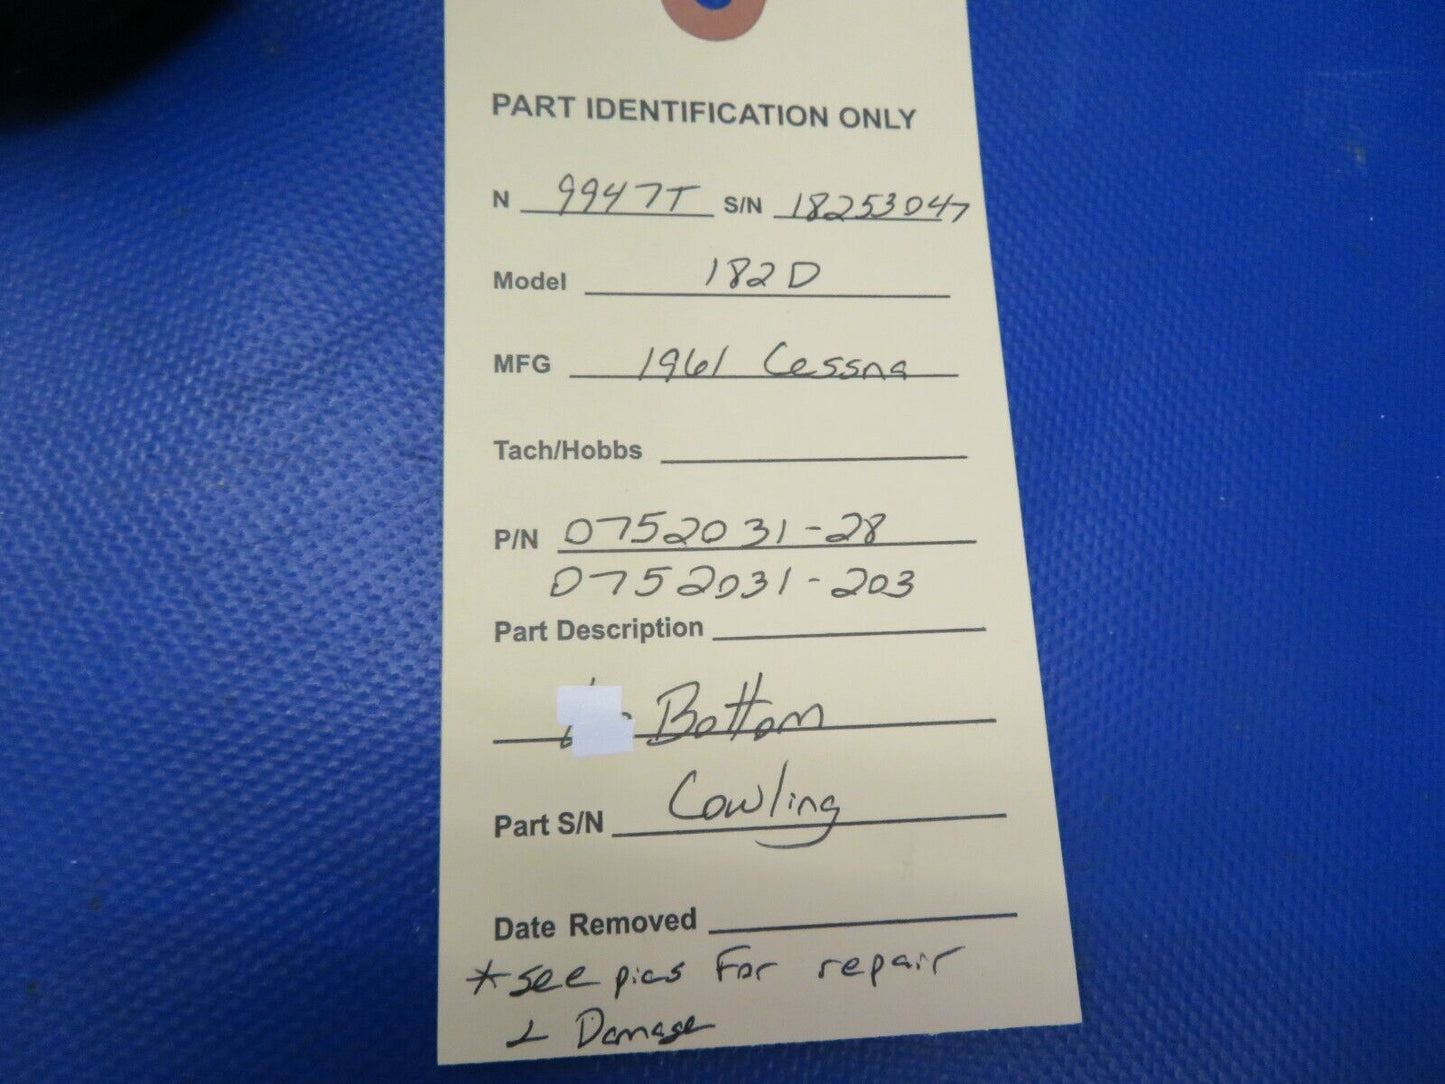 PART IDENTIFICATION ONLY
N 9947T S/N 18253047
Model 182D
MFG 1961 Cessna
Tach/Hobbs
P/N 0752031-28
0752031-203
Part Description
Bottom
Cowling
Part S/N
Date Removed
* see pics For repair
& Damage